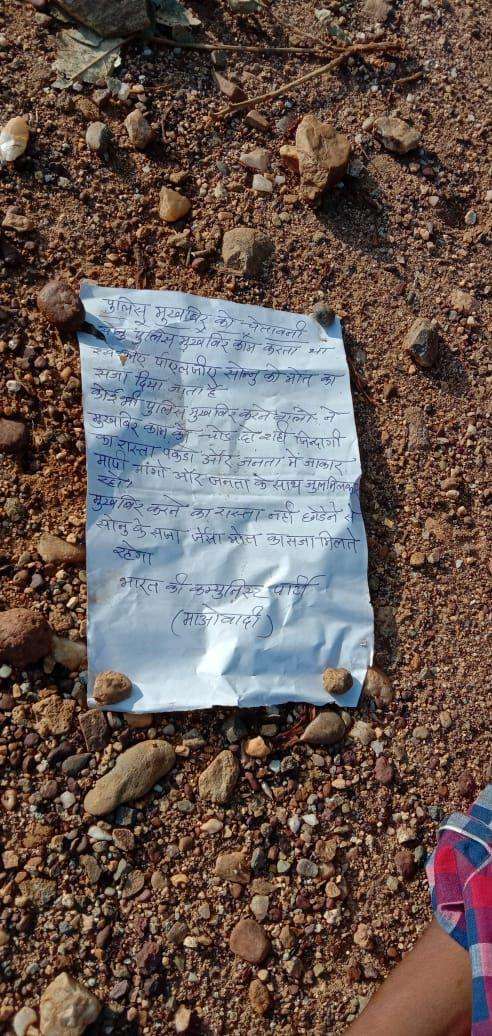 पुलिस मुखबिर को चेतावनी
पुलिस मुखबिर काम करता था
पीएलजीए सोनु को मौत का
सजा दिया जाता है
कोई भी पुलिस मुखबिर करने वालो ने
मुखबिर काम को छोड़ दो सही जिन्दगी
का रास्ता पकडो और जनता में जाकर
मापी मांगो और जनता के साथ जुलमिलकर
रहो।
मुखबिर करने का रास्ता नही छोडेने से
सोनु के सजा जैसा मौत का सजा मिलते
रहेगा
भारत की कम्युनिस्ट पार्टी
(माओवादी)